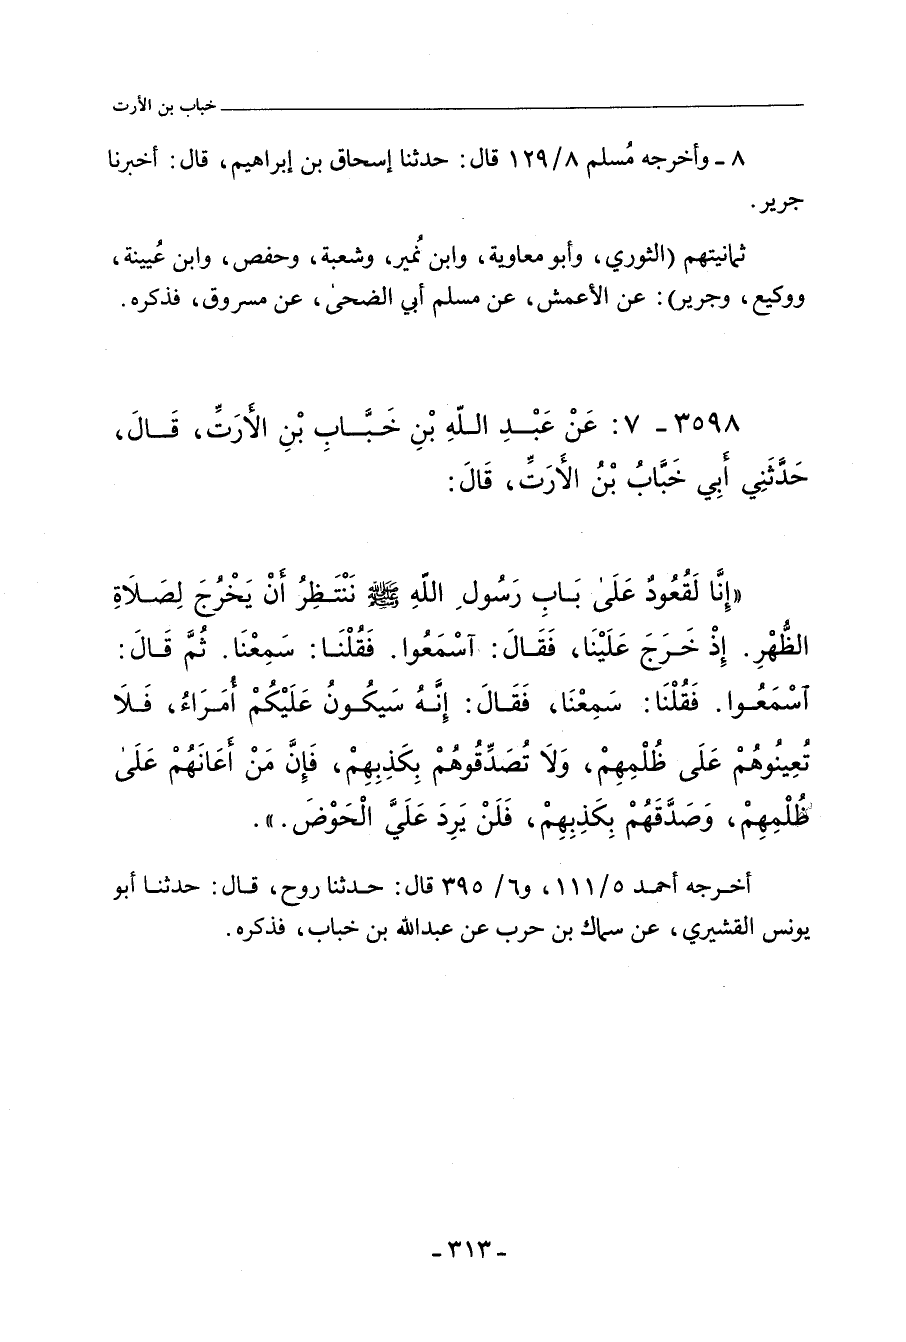 خباب بن الأرت
٨ ـ وأخرجه مُسلم ٨/ ١٢٩ قال: حدثنا إسحاق بن إبراهيم، قال: أخبرنا
جرير.
ثمانيتهم (الثوري، وأبو معاوية، وابن نُمير، وشعبة، وحفص، وابن عُيينة،
ووكيع، وجرير): عن الأعمش، عن مسلم أبي الضحىٰ، عن مسروق، فذكره.
٣٥٩٨ ـ ٧: عَنْ عَبْدِ اللّهِ بْنِ خَبَّابِ بْنِ الأَرَتِّ، قَالَ،
حَدَّثَنِي أَبِي خَبَّابُ بْنُ الأَرَتِّ، قَالَ:
«إِنَّا لَقُعُودٌ عَلَىٰ بَابِ رَسُولِ اللّهِ ﷺ نَنْتَظِرُ أَنْ يَخْرُجَ لِصَلَاةِ
الظُّهْرِ. إِذْ خَرَجَ عَلَيْنَا، فَقَالَ: آسْمَعُوا. فَقُلْنَا: سَمِعْنَا. ثُمَّ قَالَ:
آسْمَعُوا. فَقُلْنَا: سَمِعْنَا، فَقَالَ: إِنَّهُ سَيَكُونُ عَلَيْكُمْ أُمَرَاءُ، فَلَا
تُعِينُوهُمْ عَلَى ظُلْمِهِمْ، وَلَا تُصَدِّقُوهُمْ بِكَذِبِهِمْ، فَإِنَّ مَنْ أَعَانَهُمْ عَلَىٰ
ظُلْمِهِمْ، وَصَدَّقَهُمْ بِكَذِبِهِمْ، فَلَنْ يَرِدَ عَلَيَّ الْحَوْضَ.».
أخرجه أحمد ٥/ ١١١، و٦/ ٣٩٥ قال: حدثنا روح، قال: حدثنا أبو
يونس القشيري، عن سماك بن حرب عن عبدالله بن خباب، فذكره.
ـ ٣١٣ ـ